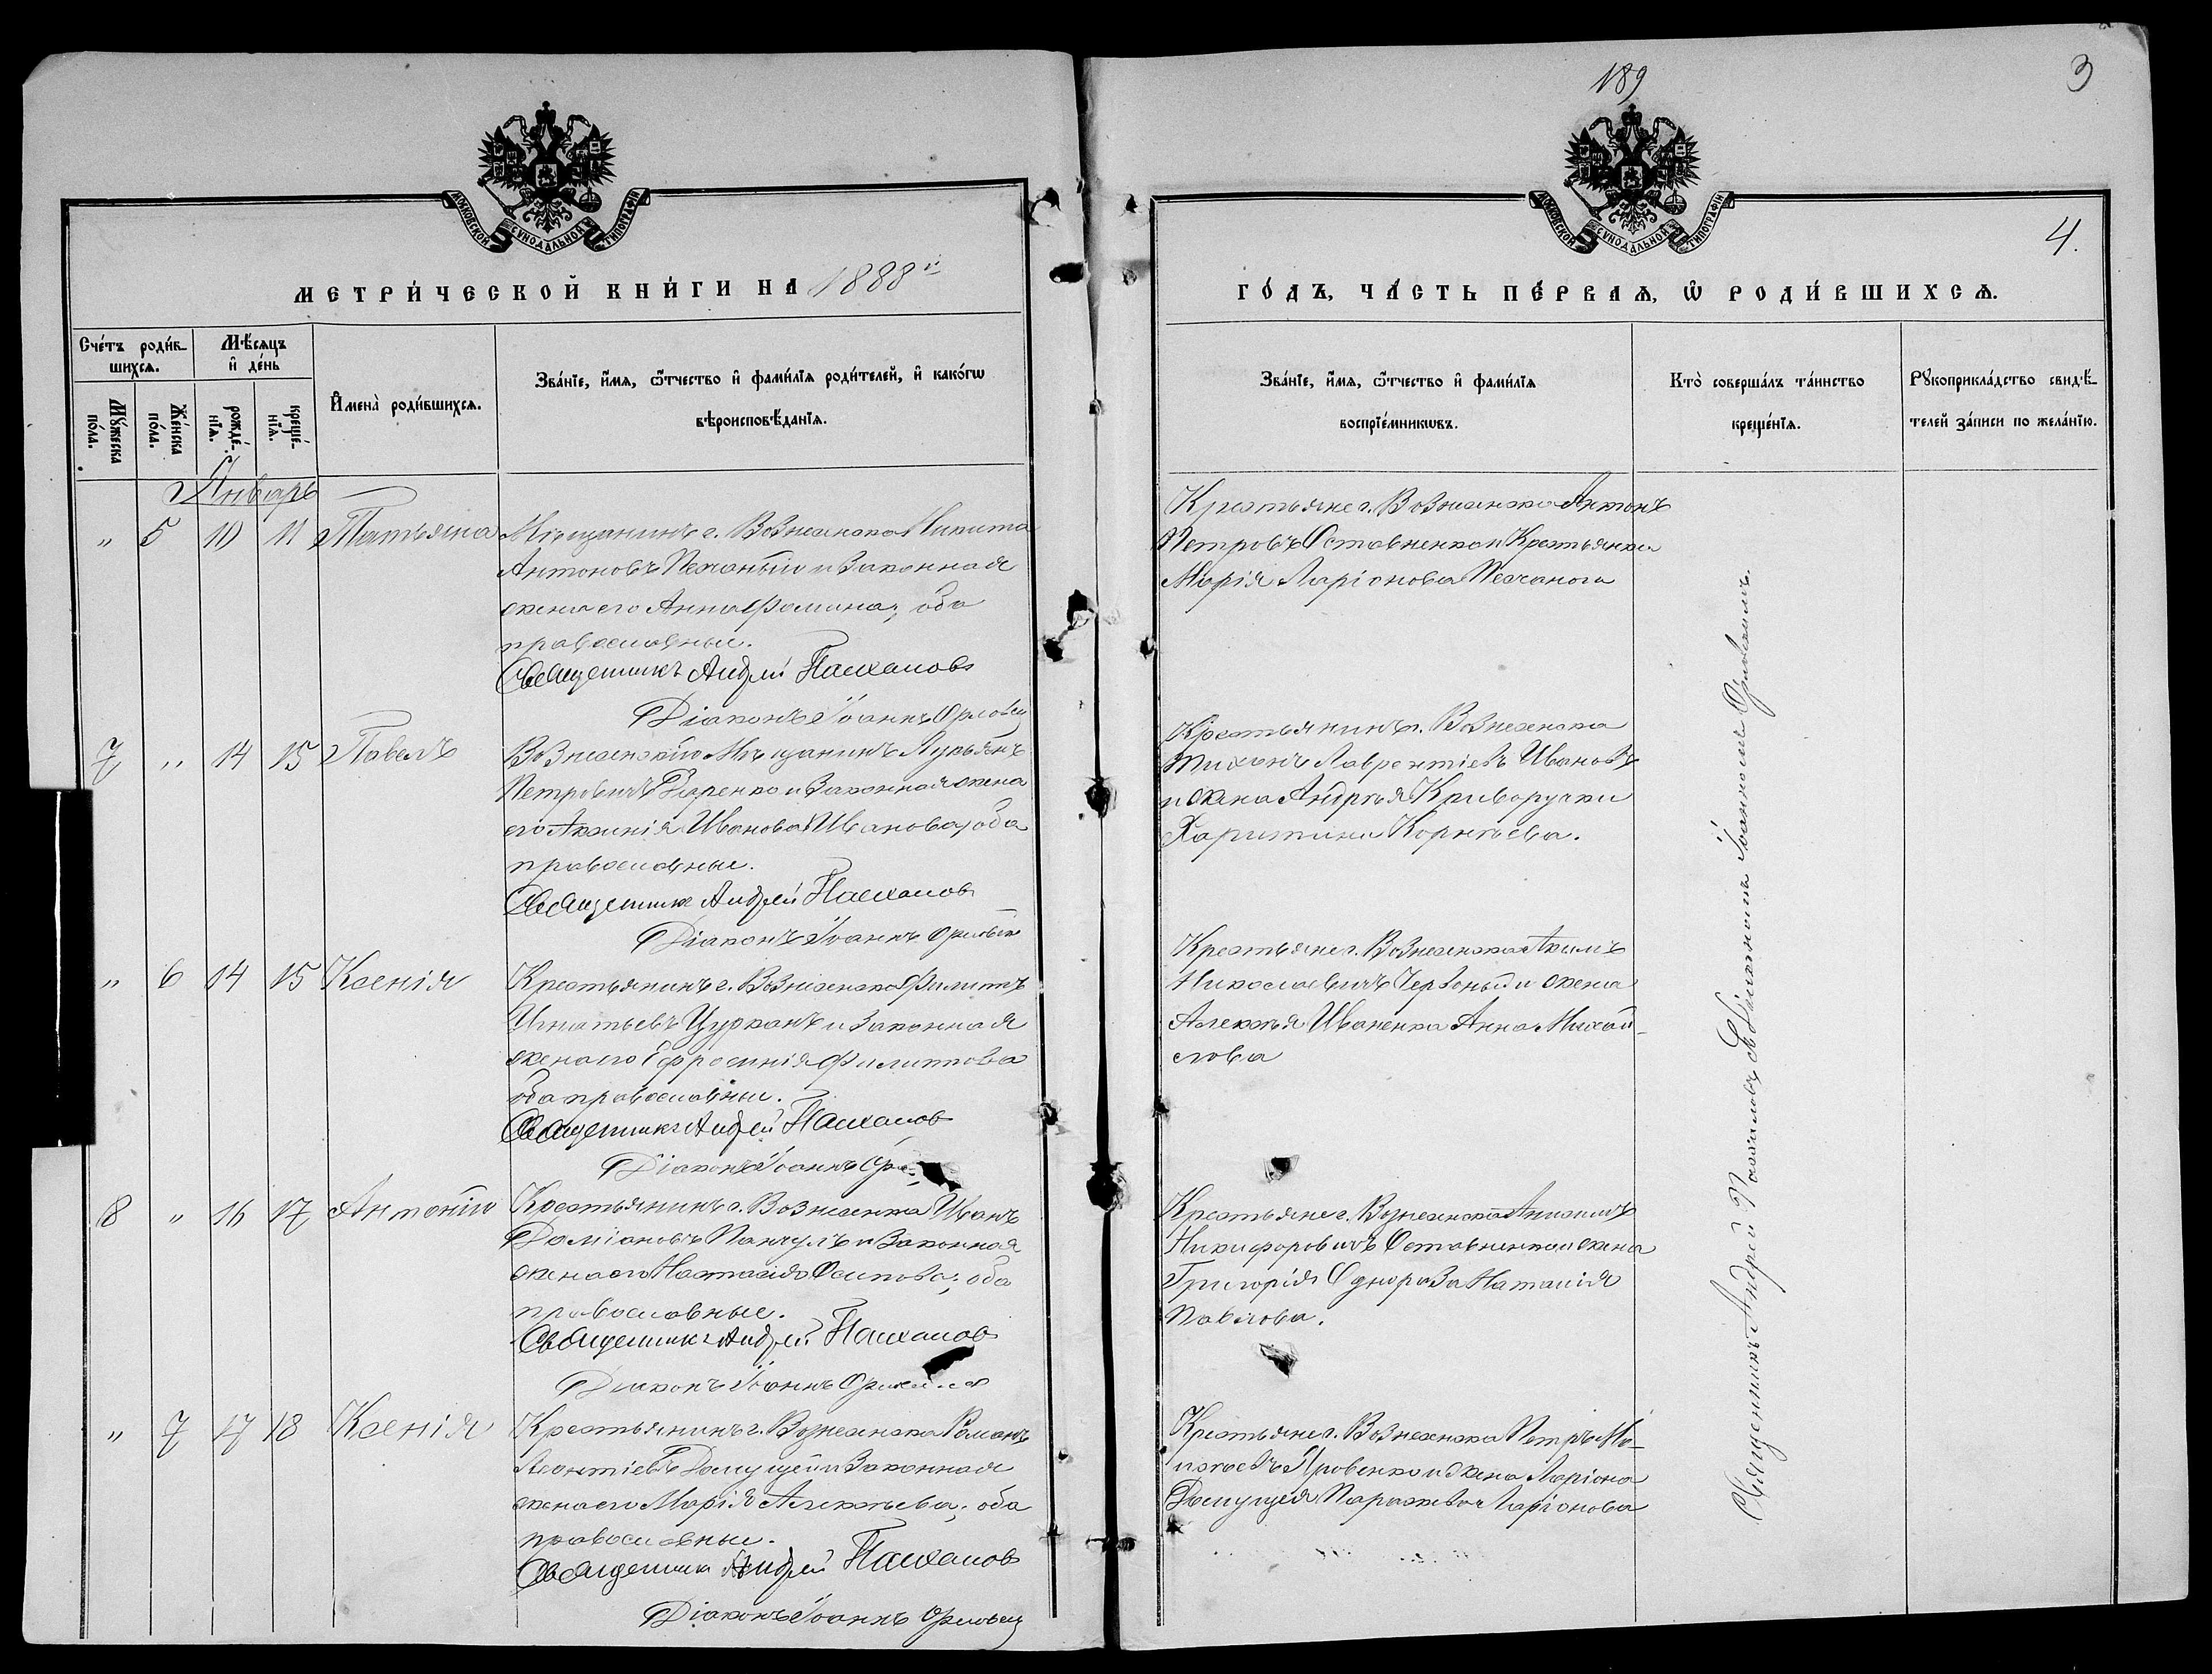 189
3
4.
МОСКОВСКОЙ СѴНОДАЛЬНОЙ ТИПОГРАФІИ
МОСКОВСКОЙ СѴНОДАЛЬНОЙ ТИПОГРАФІИ
МЕТРИ́ЧЕСКОЙ КНИ́ГИ НА 1888й
ГО́ДЪ, ЧА́СТЬ ПЕ́РВАѦ, Ѡ҆ РОДИ́ВШИХСѦ.
Сче́тъ роди́в-
шихсѧ.
Мѣ́сѧцъ
и҆ де́нь
Мꙋ́жеска
по́ла.
Же́нска
по́ла.
рожде́-
нїѧ.
креще́-
нїѧ.
И҆мена̀ роди́вшихсѧ.
Зва́нїе, и҆́мѧ, ѻ҆́тчество и҆ фами́лїѧ роди́телей, и҆ како́гѡ
вѣроисповѣ́данїѧ.
Зва́нїе, и҆́мѧ, ѻ҆́тчество и҆ фами́лїѧ
воспрїе́мникѡвъ.
Кто̀ соверша́лъ та́инство
креще́нїѧ.
Рꙋкоприкла́дство свидѣ́-
телей за́писи по жела́нїю.
Январь
" 5 10 11 Татьяна
Мѣщанинъ г. Вознесенска Никита
Антоновъ Песчаный и Законная
жена его Анна Фомина; оба
православные.
Священникъ Андрей Пасхалов
Діаконъ Іоаннъ Орловъ
Крестьяне г. Вознесенска Антонъ
Петровъ Оставненко и Крестьянка
Марія Ларіонова Песчаного
7 " 14 15 Павелъ
Вознесенскій Мѣщанинъ Лукьянъ
Петровичъ и Законная жена
его Ксинія Иванова Иванова, оба
православные.
Священник Андрей Пасхалов
Діаконъ Іоаннъ
Крестьянинъ г. Вознесенска
Тихонъ Лаврентіевъ Ивановъ
и жена Андрея Криворучки
Харитина Корнѣева.
" 6 14 15 Ксенія
Крестьянинъ г. Вознесенска Филиппъ
Игнатьевъ Цурканъ и Законная
жена его Ефросинія Филиппова
оба православные.
Священникъ Андрей Пасхалов
Діаконъ Іоаннъ
Крестьяне г. Вознесенска Акимъ
Николаевичъ Червоный и жена
Алексѣя Иваненка Анна Михай-
лова
8 " 16 17 Антоній
Крестьянинъ г. Вознесенска Иванъ
Даміановъ Панчулъ и Законная
жена его Настасія Осипова; оба
православные.
Священникъ Андрей Пасхалов
Діаконъ Іоаннъ
Крестьяне г. Вознесенска Анисимъ
Никифоровичъ Оставненко и жена
Григорія Однороза Наталія
Павлова.
" 7 17 18 Ксенія
Крестьянинъ г. Вознесенска Романъ
Леонтіевъ и Законная
жена его Марія Алексѣева; оба
православные.
Священник Андрей Пасхалов
Діаконъ Іоаннъ Орловъ
Крестьяне г. Вознесенска Петръ Мо-
исеевъ Яровенко и жена Ларіона
Параскева Ларіонова
Священникъ Андрей Пасхаловъ съ Діакономъ Іоанномъ